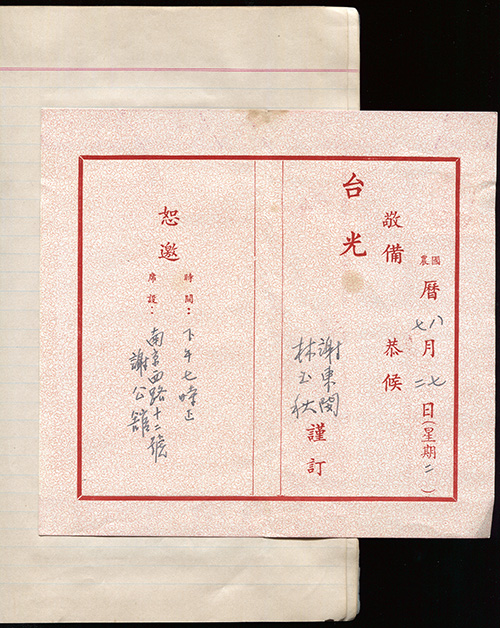 國農曆八七月七二日(星期二)
敬備 恭候
台光
謝東閔
林玉秋
謹訂
恕邀
時間:下午七時正
席設:南京西路十二號
謝公館